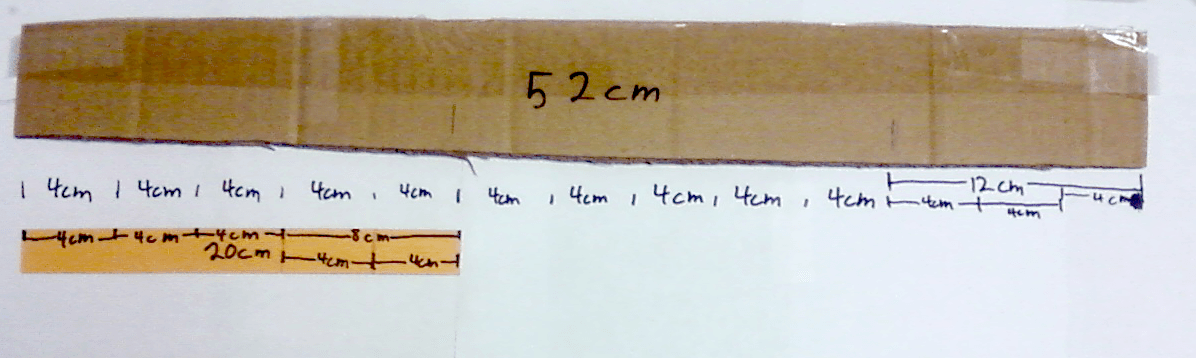 52cm
12cm
4cm 4cm 4cm 4cm 4cm 4cm 4cm 4cm 4cm 4cm 4cm 4cm 4cm
4cm 4cm 4cm 8cm
20cm 4cm 4cm